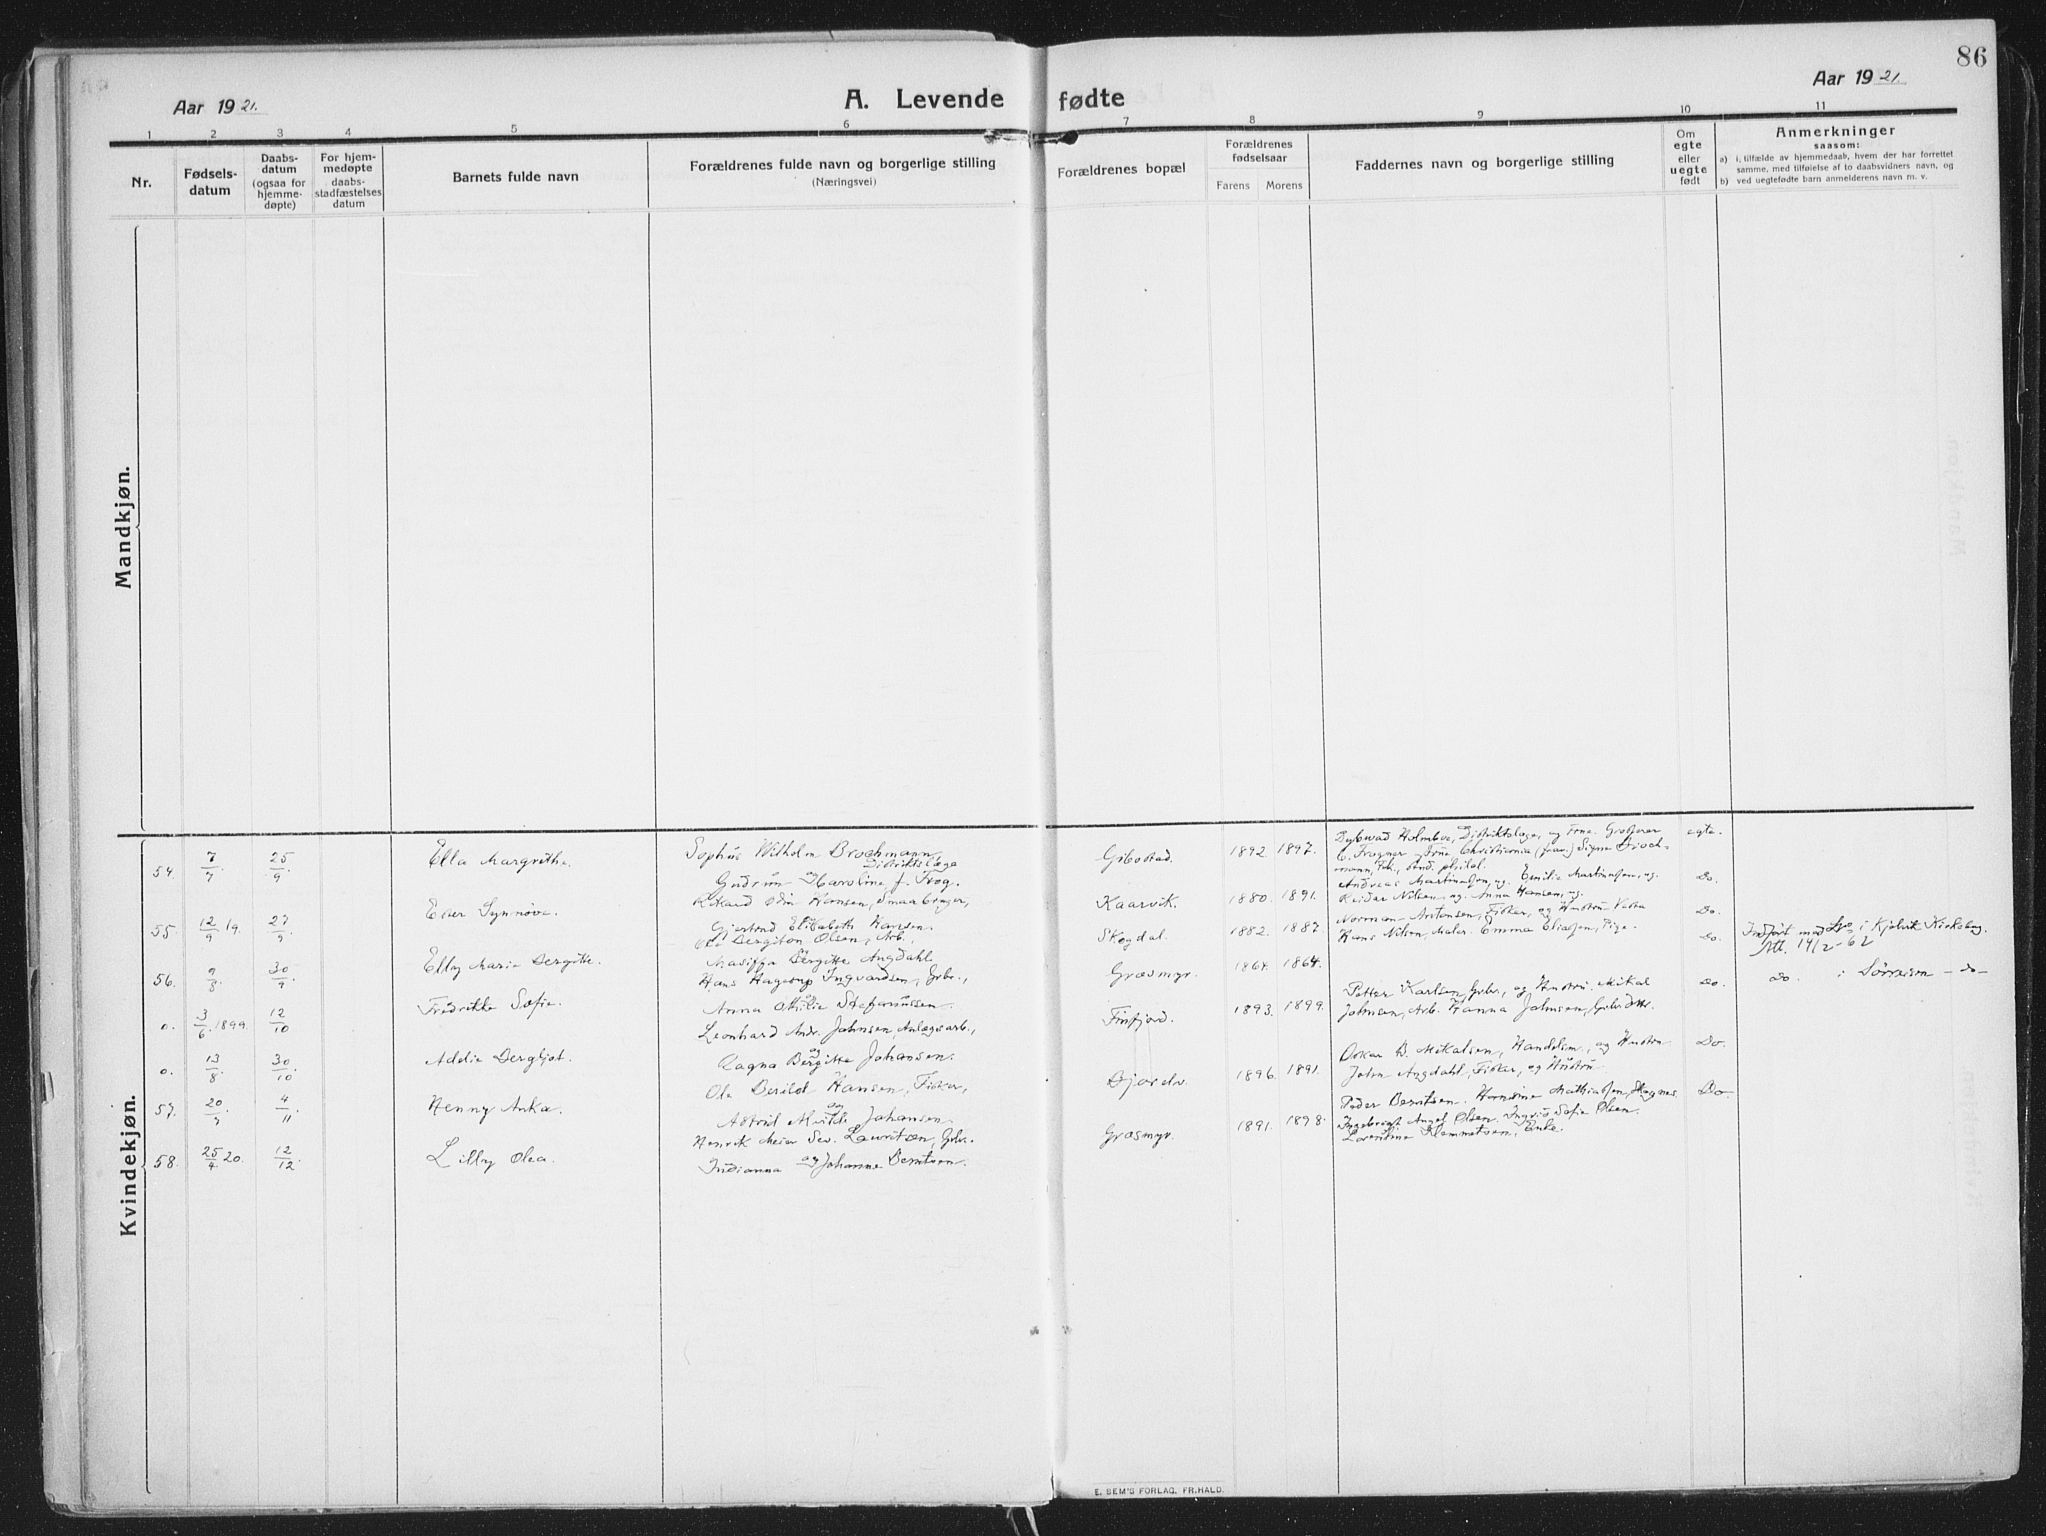 86
Aar 1921. A. Levende fødte Aar 1921.
1 2 3 4 5 6 7 8 9 10 11
Nr.
Fødsels-
datum
Daabs-
datum
(ogsaa for
hjemme-
døpte)
For hjem-
medøpte
daabs-
stadfæstelses
datum
Barnets fulde navn
Forældrenes fulde navn og borgerlige stilling
(Næringsvei)
Forældrenes bopæl
Forældrenes
fødselsaar
Farens Morens
Faddernes navn og borgerlige stilling
Om
egte
eller
uegte
født
Anmerkninger
saasom:
a) i tilfælde av hjemmedaab, hvem der har forrettet
samme, med tilføielse af to daabsvidners navn, og
b) ved uegtefødte barn anmelderens navn m. v.
Mandkjøn.
Kvindekjøn.
54. 7/7. 25/9. Ella Margrethe.
Sophus Wilhelm Brochmann,
Distriktslæge
og
Gudrun Karoline f. Frog.
Gibostad. 1892. 1897.
Holmboe, Distriktslæge, og Frue.
Christiania Signe Broch-
mann,
egte.
55. 12/9 19. 27/9. Ester Synnøve.
Rikard Odin Hansen, Smaabruger,
Gjertrud Elisabeth Hansen.
Kaarvik. 1880. 1891.
Andreas Martinussen, og Emilie Martinussen, og
Reidar Nilsen, og Anna Hansen, og
Do.
56. 9/8. 30/9. Elly Marie Bergitte.
Ole Bergiton Olsen, Arb.,
Bergitte Angdahl
Skogdal. 1882. 1887.
Norman Antonsen, Fisker, og Hustru
Hans Nilsen, Maler. Emma Eliasen, Pige.
Do.
o. 3/6. 1899. 12/10 Fredrikke Sofie.
Hans Hagerup Ingvardsen, Gbr.,
og
Anna Otilie Stefanussen.
Græsmyr. 1864. 1864.
Do.
Indført med Lo i Kjelvik Kirkebog.
14/2-62
o. 13/8. 30/10. Addie Bergljot.
Leonhard Andr. Johnsen, Anlægsarb.,
og
Ragna Bergitte Johansen.
Finfjord. 1893. 1899.
Petter Karlsen, Gbr., og Hustru. Mikal
Johnsen, Arb. Hanna Johnsen, Gbr.
Do.
Do. i Sørreisen - do -
57. 20/9 4/11 Henny Anka.
Ole Berildt Hansen, Fisker,
og
Astrid Alvilde Johansen.
Bjorelv. 1896. 1891.
Oskar B. Mikalsen, Handelsm., og Hustru
John Angdahl, Fisker, og Hustru
Do.
58. 25/4 20. 12/12. Lilly Olea.
Henrik Meier Sev. Lauritsen, Gbr.
og
Indianna Johanne Berntsen.
Græsmyr. 1891. 1898.
Peder Berntsen. Mathiassen, Skognes.
Ingebrigt Olsen. Ingrid Sofie Olsen.
Lorentine Klemmetsen, Enke.
Do.
E. SEM'S FORLAG, FR.HALD.